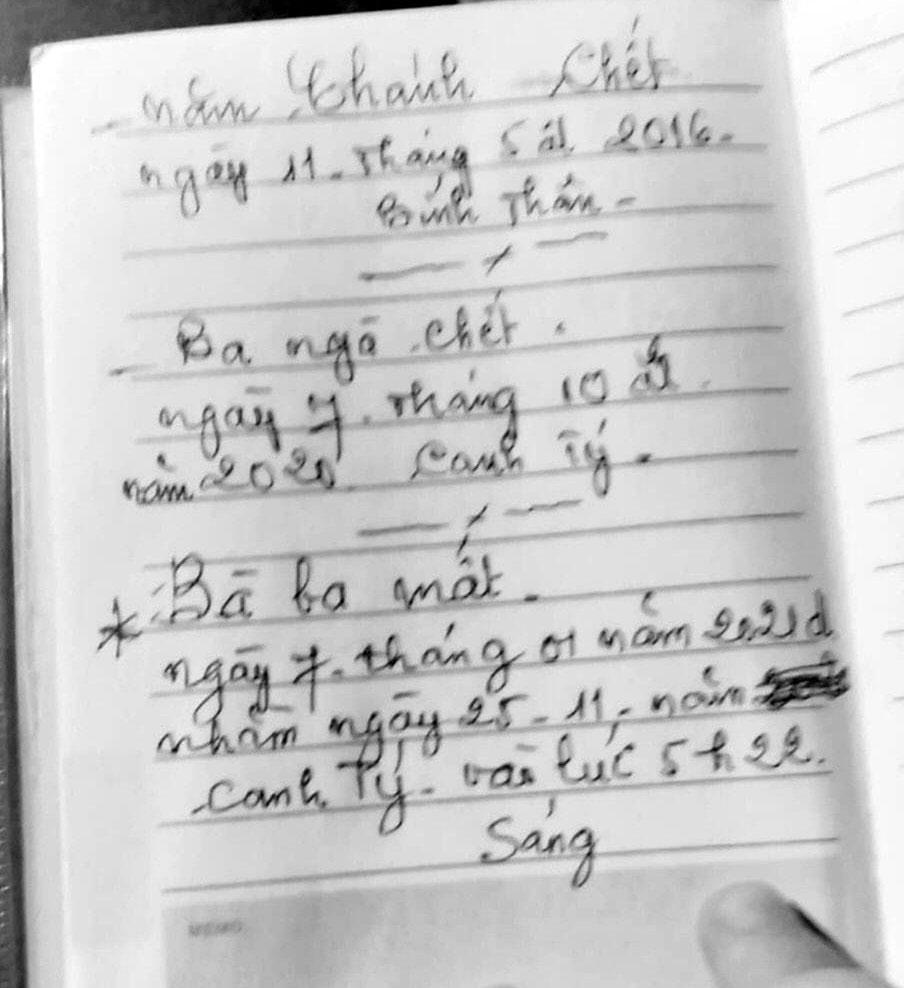 - năm Khánh chết
ngày 11. Tháng 5 âl 2016-
Bính Thân -
- Ba ngã chết.
ngày 7. Tháng 10 âl.
năm 2020 Canh Tý.
* Bà ba mất.
ngày 7. tháng 01 năm 2021 d
nhằm ngày 25-11, năm
Canh Tý. vào lúc 5h22.
Sáng
MEMO